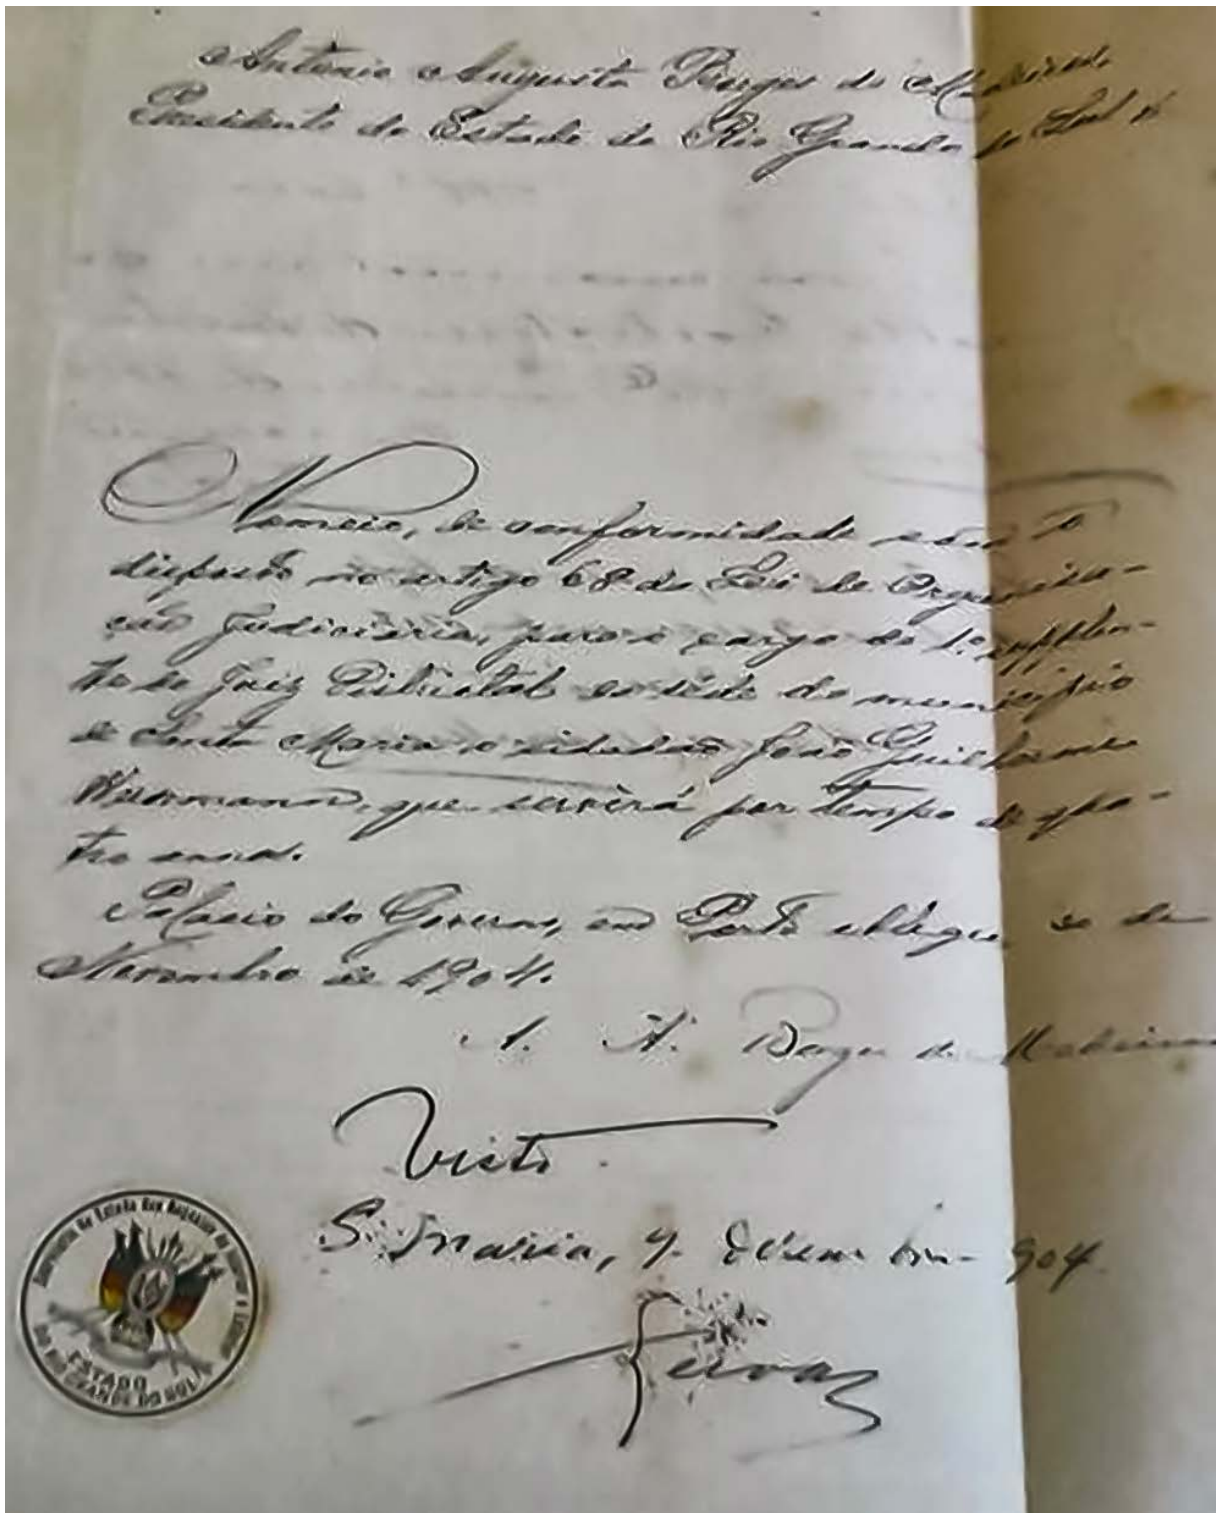 Antonio Augusto Borges de Medeiros
Presidente do Estado do Rio Grande do Sul
Nomeio, de conformidade com o
disposto no artigo 68 da Lei de Organisa-
ção Judiciaria, para o cargo de 1º supplen-
te do Juiz Districtal da séde do municipio
de Santa Maria o cidadão João Guilherme
que servirá por tempo de qua-
tro annos.
Palacio do Governo, em Porto Alegre, de
Novembro de 1904.
A. A. Borges de Medeiros
Visto.
S. Maria, 904
ESTADO
DO RIO GRANDE DO SUL